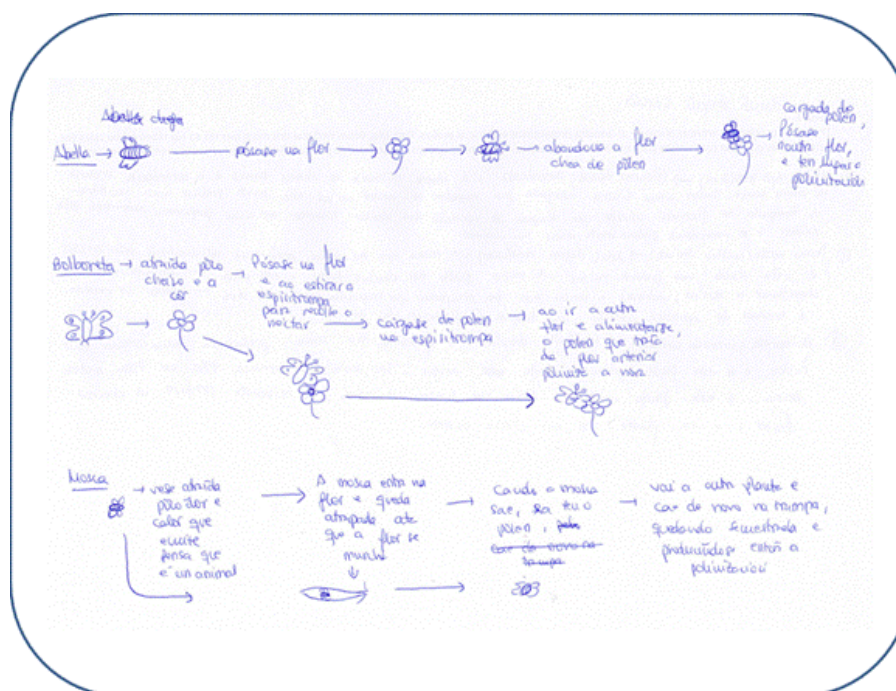 Abella →
→ pósase na flor →
→ abandona a flor
chea de polen →
→ cargada de
polen,
Pósase
noutra flor,
e ten lugar a
polinización
Bolboreta → atraída polo
cheiro e a
cor
→ Pósase na flor
e ao estirar a
espiritrompa
para recoller o
néctar
→ cárgase de polen
na espiritrompa
→ ao ir a outra
flor e alimentarse,
o polen que
da flor anterior
poliniza a nova
Mosca
→ vese atraída
polo olor e
calor que
emite
pensa que
é un animal
→ A mosca entra na
flor e queda
atrapada ata
que a flor se
murcha
→ Cando a mosca
sae, xa ten o
polen,
car de novo na
trampa
→ vai a outra planta e
cae de novo na trampa,
quedando secuestrada e
producíndose entón a
polinización